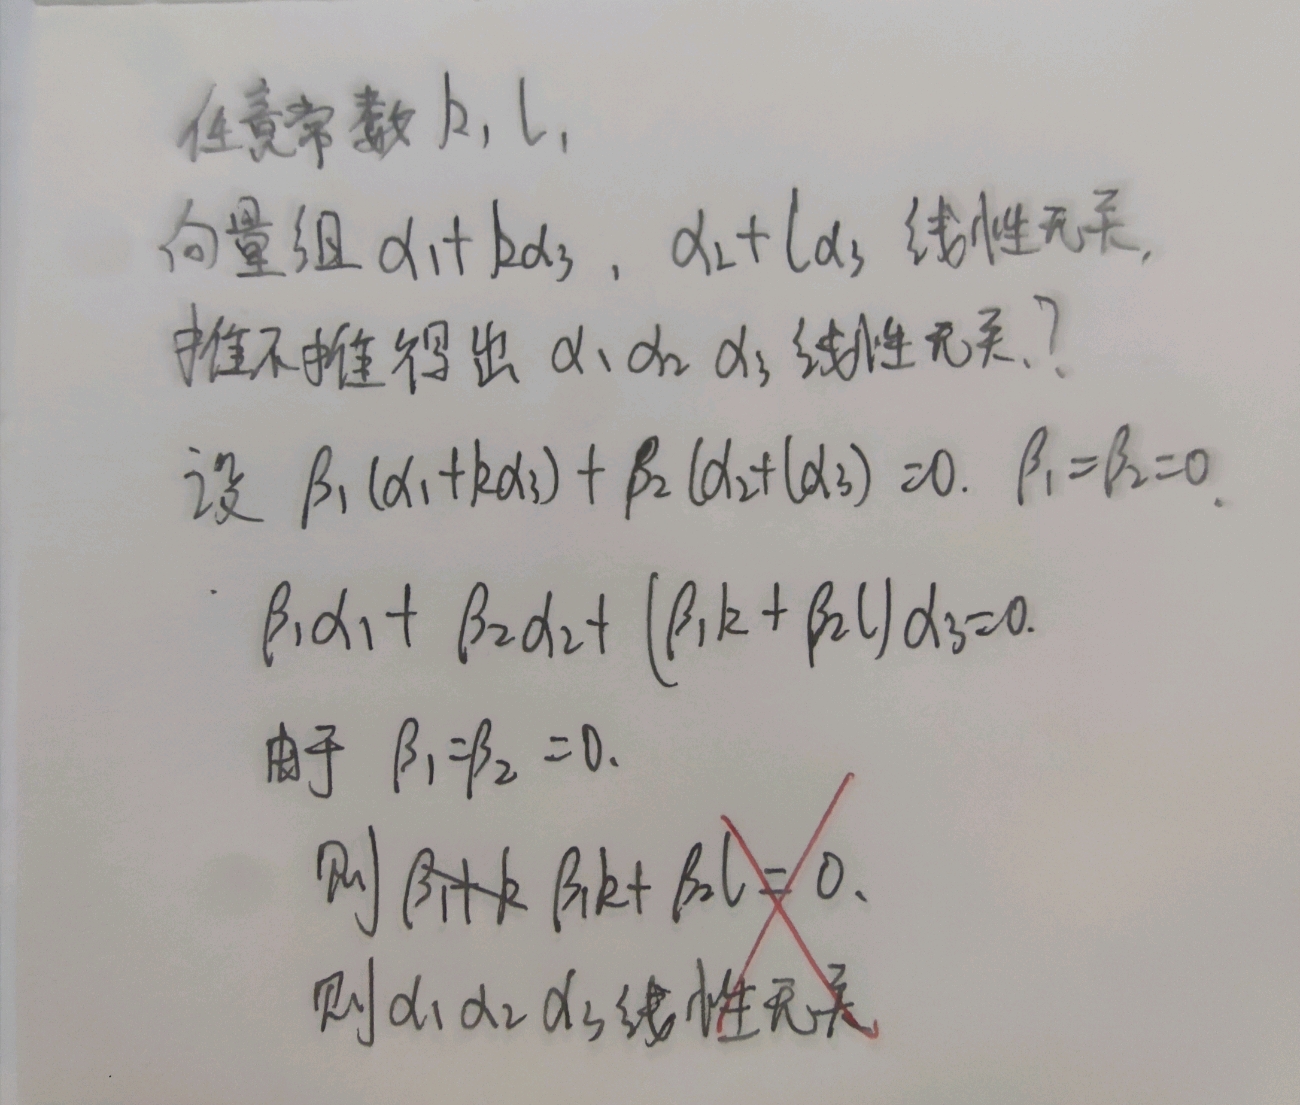 任意常数 k, l,
向量组 α₁+kα₃, α₂+lα₃ 线性无关,
推不推得出 α₁ α₂ α₃ 线性无关?
设 β₁(α₁+kα₃)+β₂(α₂+lα₃)=0. β₁=β₂=0.
β₁α₁+β₂α₂+(β₁k+β₂l)α₃=0.
由于 β₁=β₂=0.
则 β₁+k β₁k+β₂l=0.
则 α₁ α₂ α₃ 线性无关